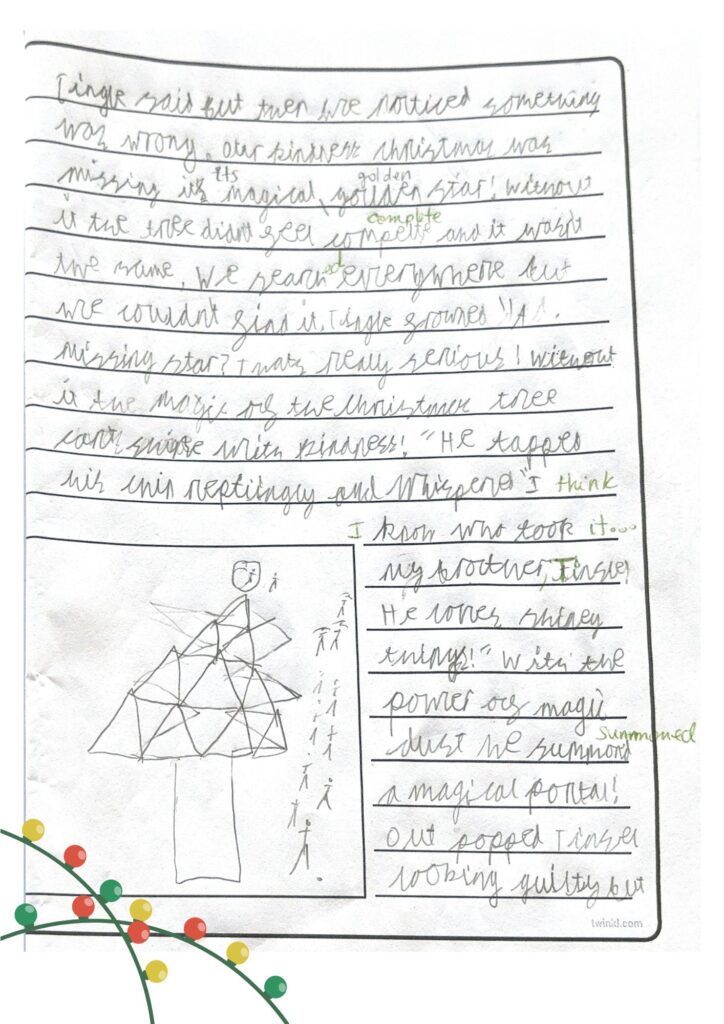 Tingle said but then we noticed something
was wrong. Our kindness christmas was
its golden
missing its magical, golden star! Without
complete
it the tree didnt feel compelte and it wasnt
ed
the same. We search everywhere but
we couldn't find it. Tingle growned "A
missing star? Thats really serious! Without
it the magic of the christmas tree
can't with kindness!" He tapped
his chin and whispered "I think
I know who took it...
my brother, Tinsel
He loves shiney
things!" With the
power of magic
summoned
dust he summond
a magical portal!
Out popped Tinsel
looking guilty but
twinkl.com